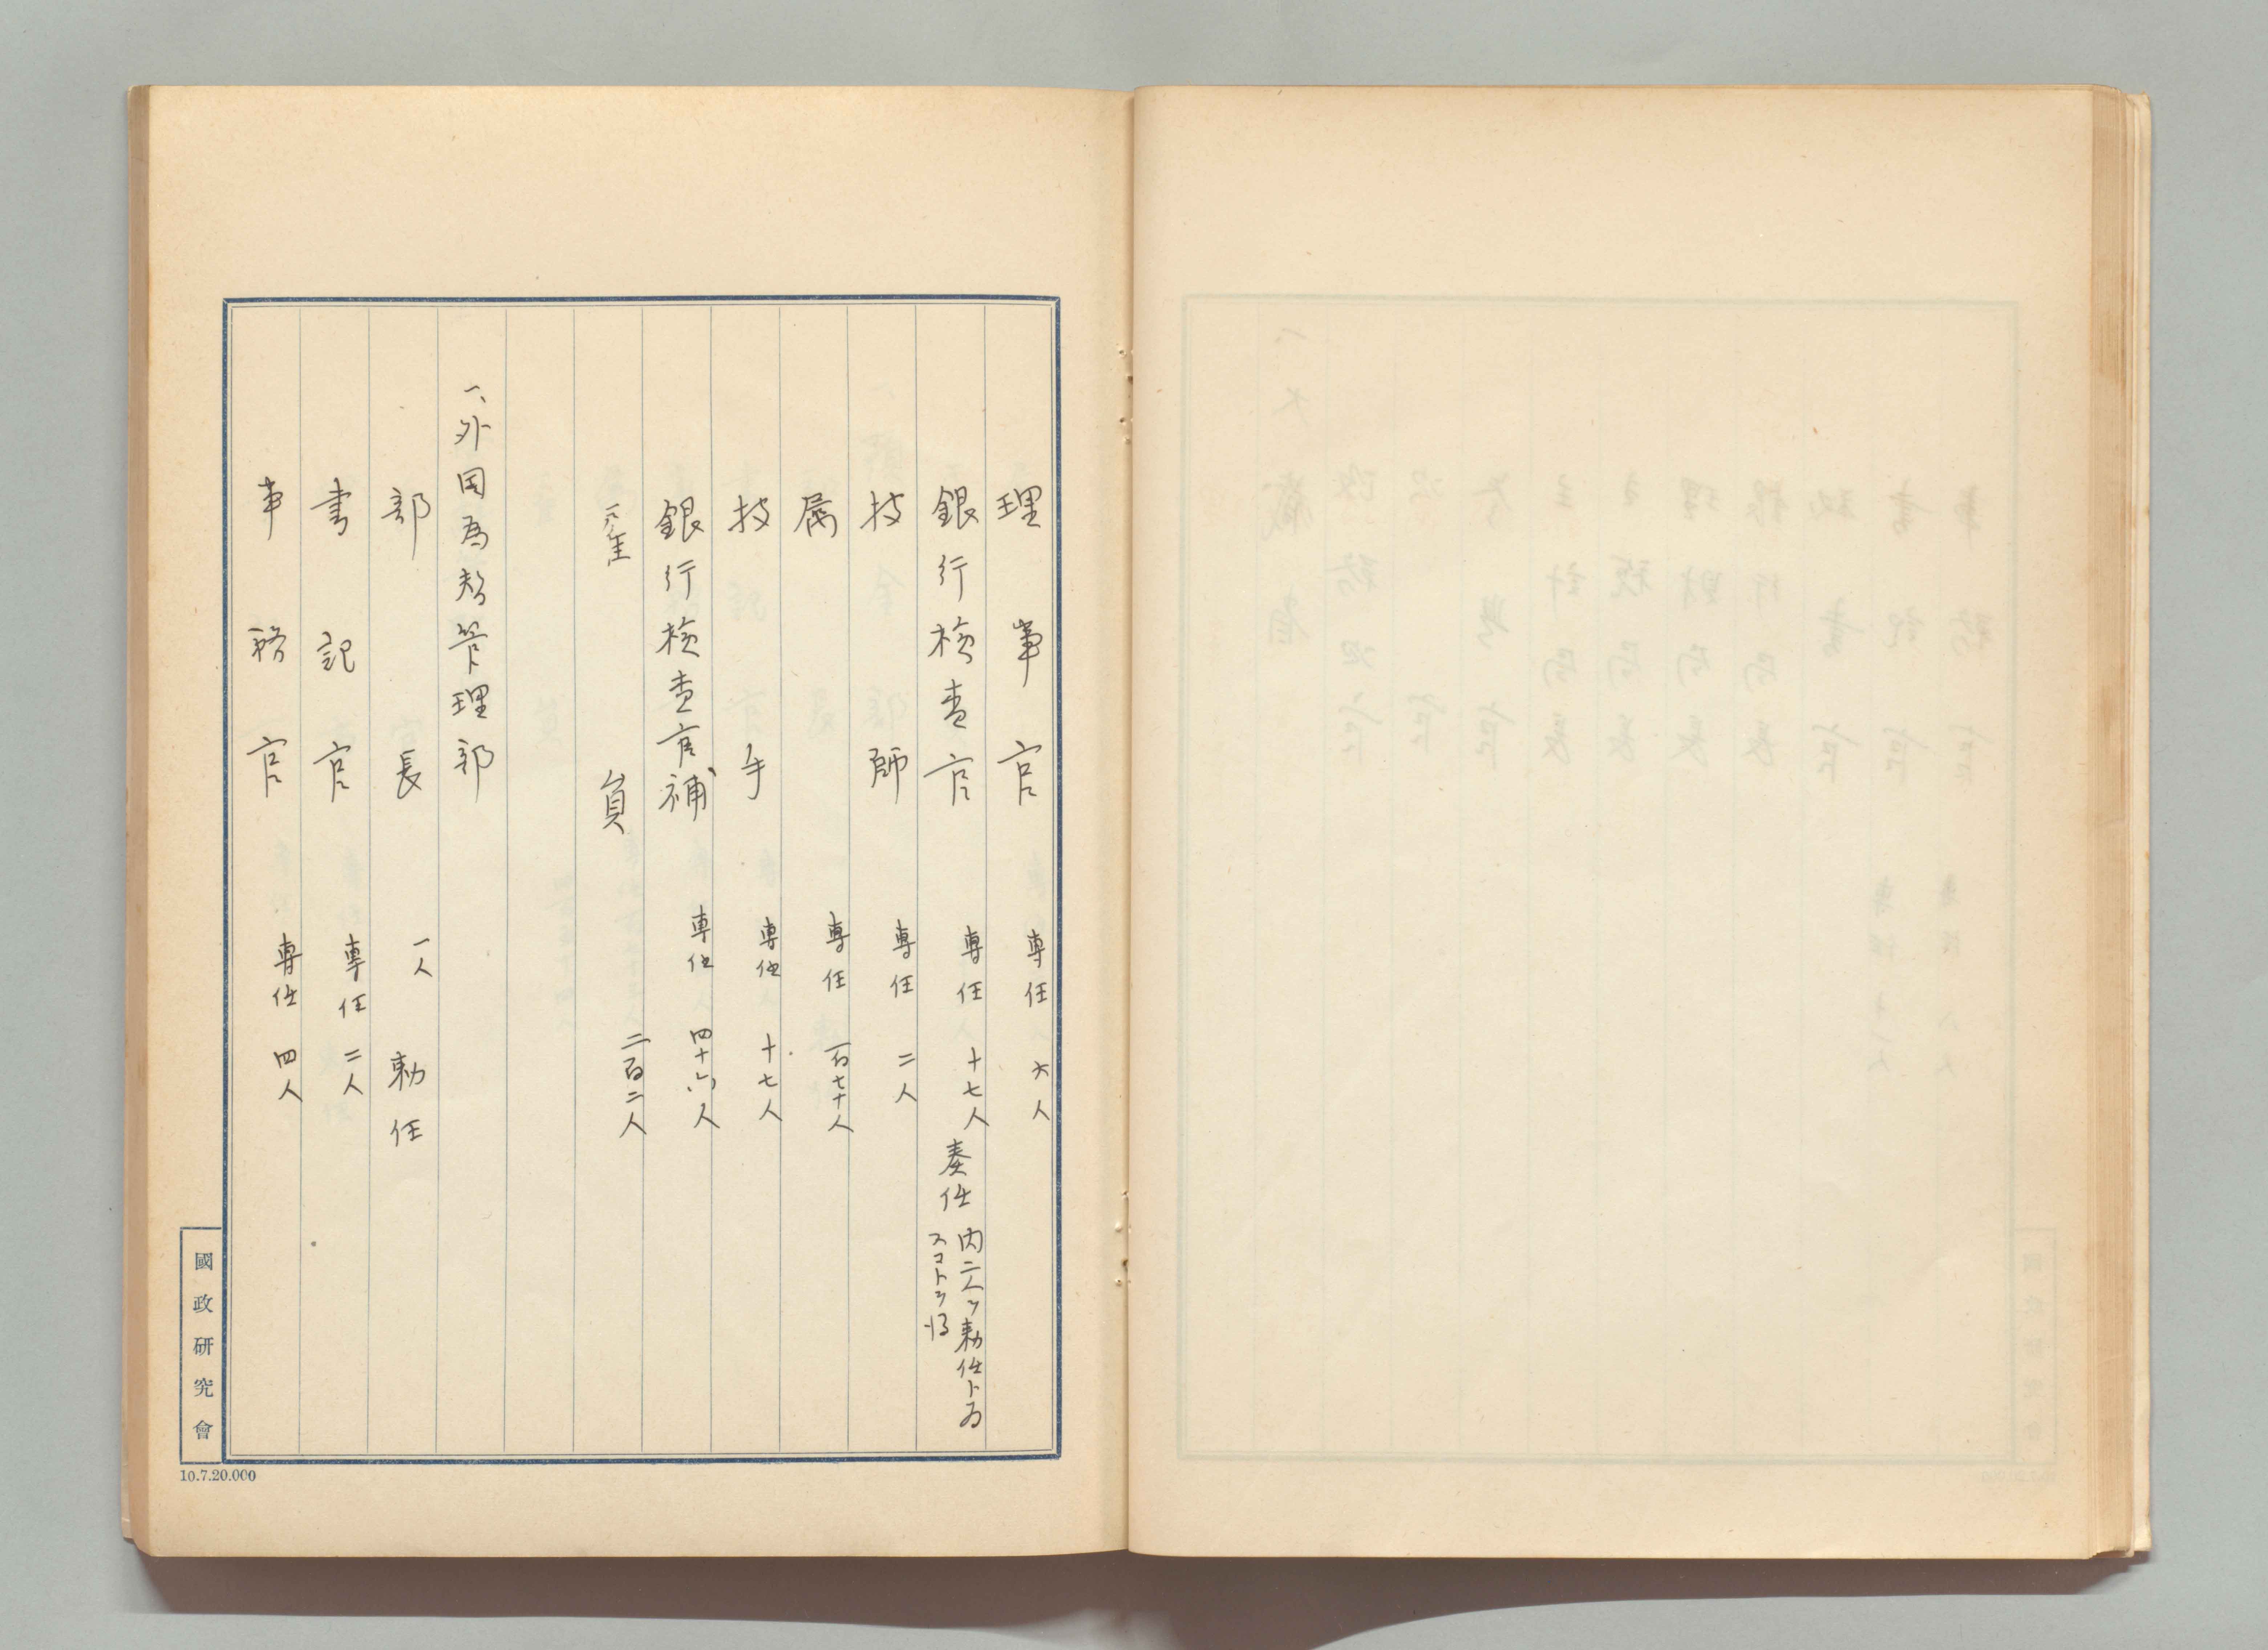 理事官 専任 六人
銀行検査官 専任 十七人 奏任 内二人ヲ勅任ト為スコトヲ得
技師 専任 二人
属 専任 百七十人
技手 専任 十七人
銀行検査官補 専任 四十六人
雇員 二百二人
一、外国為替管理部
部長 一人 勅任
書記官 専任 二人
事務官 専任 四人
國政研究會
10.7.20.000